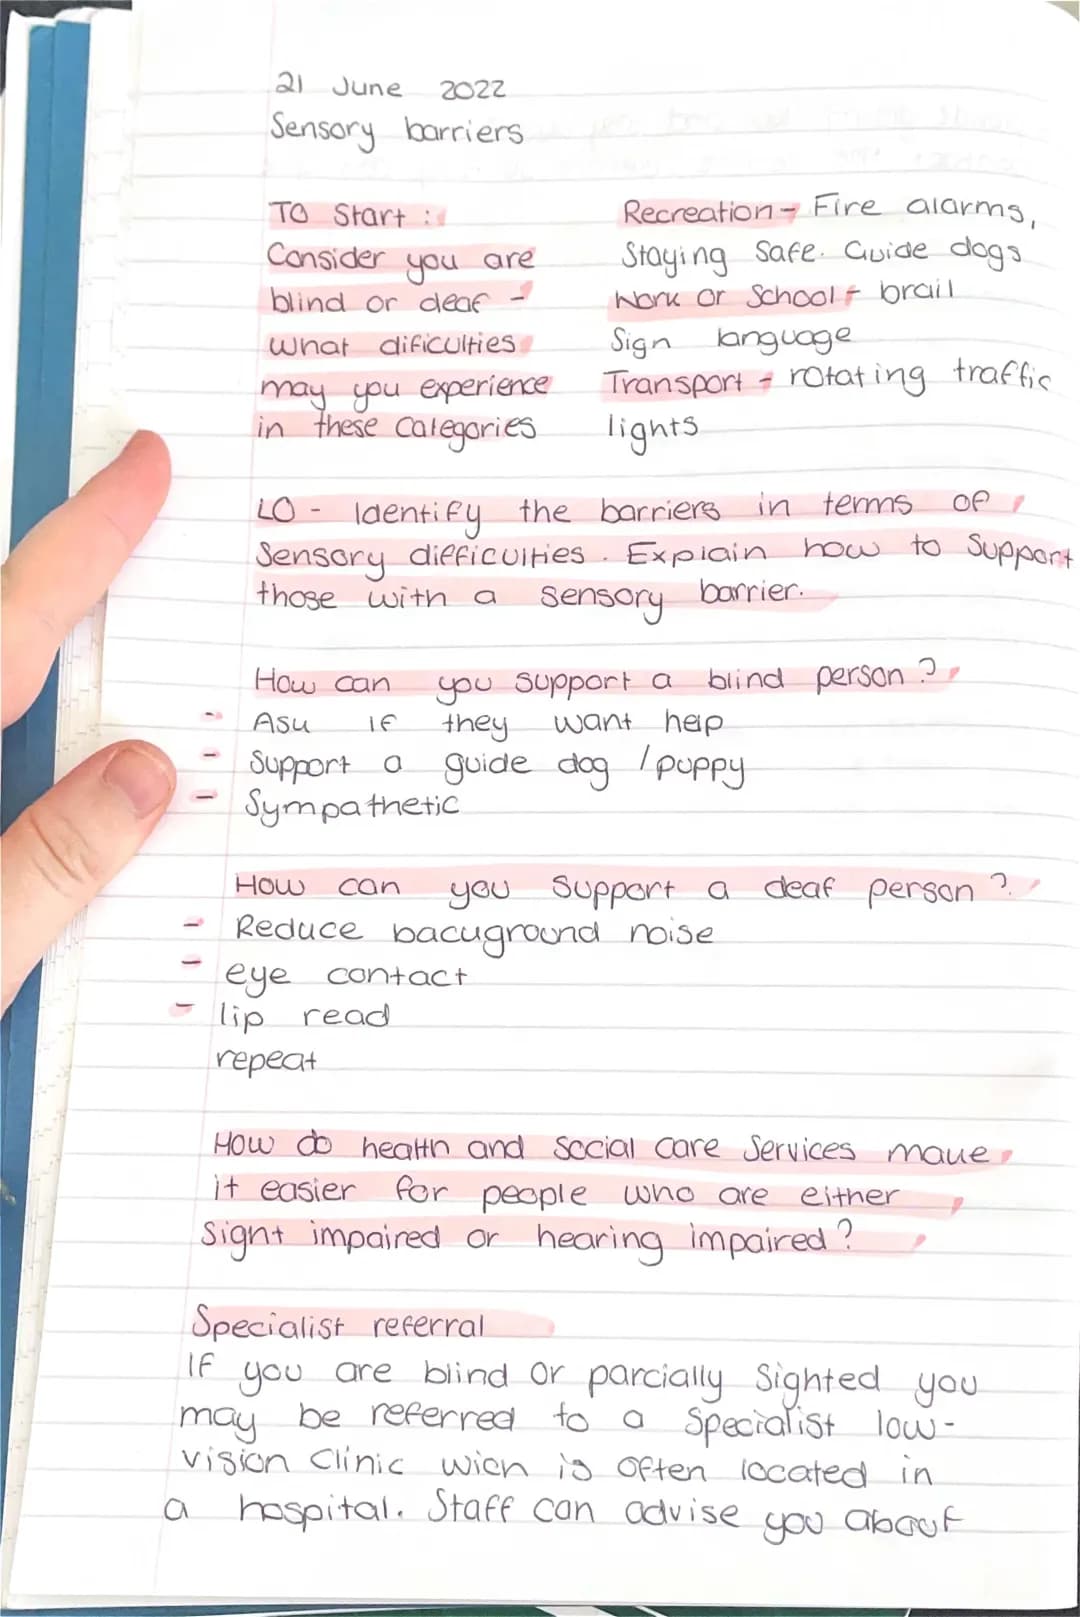 21 June 2022
Sensory barriers
TO Start :
Consider you are
blind or deaf -
what dificulties
may you experience
in these Categories
Recreation - Fire alarms,
Staying Safe. Guide dogs
Work or School - brail
Sign language
Transport - rotating traffic
lights
LO - Identify the barriers in terms of
Sensory difficulties. Explain how to Support
those with a sensory barrier.
How can you support a blind person?
- Ask if they want help
- Support a guide dog / puppy
- Sympathetic
How can you support a deaf person?
- Reduce background noise
- eye contact
- lip read
repeat
How do health and Social Care Services make
it easier for people who are either
Sight impaired or hearing impaired?
Specialist referral
If you are blind or parcially Sighted you
may be referred to a Specialist low-
vision Clinic wich is Often located in
a hospital. Staff can advise you about